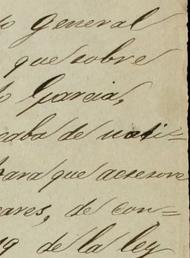 general
que sobre
Garcia,
caba de noti-
para que asesore
ares, de con-
19 de la ley